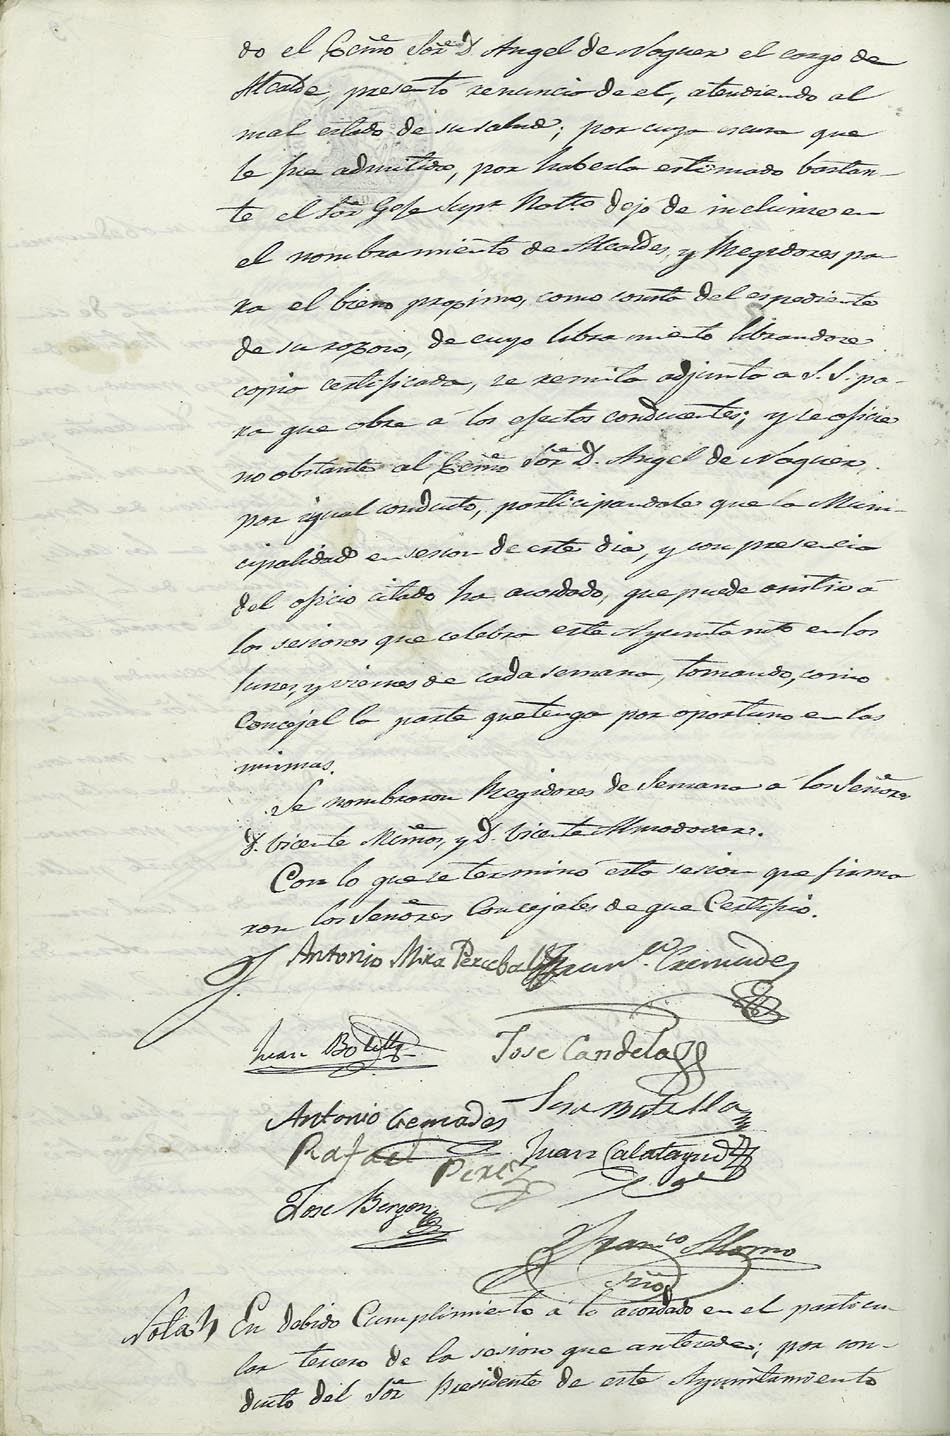 do el Ecmõ Sor̃ D. Angel de Noguer el cargo de
Alcalde, presentó renuncia de el, atendiendo al
mal estado de su salud; por cuya causa que
le fue admitida, por haberla estimado bastan-
te el Sor̃ Gefe Supr Potto dejo de incluirse en
el nombramiento de Alcaldes, y Regidores pa-
ra el bieno proximo, como consta del espediente
de su razon, de cuyo libramiento librandose
copia certificada, se remita adjunta a S. S. pa-
ra que obre á los efectos conducentes; y se oficie
no obstante al Ecmõ Sor̃ D. Angel de Noguer
por igual conducto, participandole que la Muni-
cipalidad en sesion de este dia, y con presencia
del oficio citado ha acordado, que puede asistir á
las sesiones que celebra este Ayuntamto en los
lunes, y viernes de cada semana, tomando, como
Concejal la parte que tenga por oportuno en las
mismas.
Se nombraron Regidores de Semana á los Señores
D. Vicente Miñor, y D. Vicente Almodovar.
Con lo que se terminó esta sesion que firma
ron los Señores Concejales de que Certifico.
Antonio Mira Perceval Franco. Cremades
Juan Botella Jose Candela
Antonio Cremades Jose Botella
Rafael Perez Juan Calatayud
Jose Bergon
Franco Alamo
Srio
Nota En debido Cumplimiento á lo acordado en el particu-
lar tercero de la sesion que antecede; por con-
ducto del Sor̃ Presidente de este Ayuntamiento